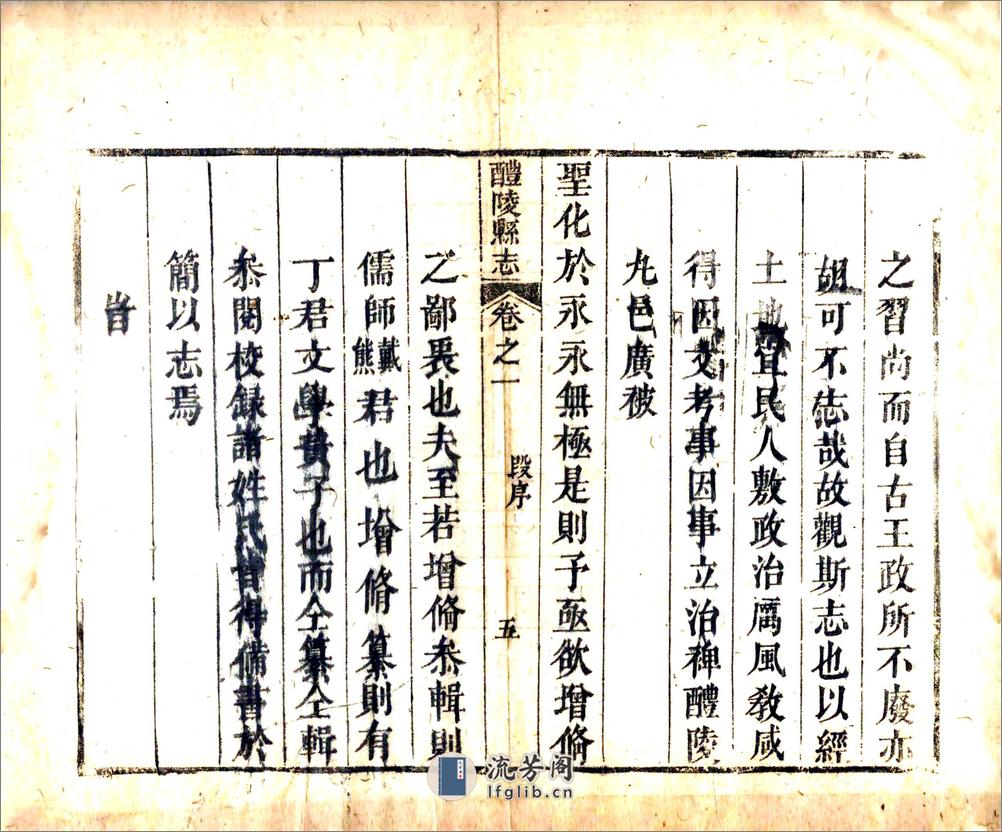 之習尚而自古王政所不廢亦
胡可不志哉故觀斯志也以經
土地宜民人敷政治厲風教咸
得因文考事因事立治裨醴陵
九邑廣被
聖化於永永無極是則予亟欲增脩
醴陵縣志 卷之一 段序 五
之鄙畏也夫至若增脩叅輯則
儒師戴熊君也增脩纂則有
丁君文學黃子也而仝纂仝輯
叅閱校録諸姓氏皆得備書於
簡以志焉
旹
流芳阁
lfglib.cn